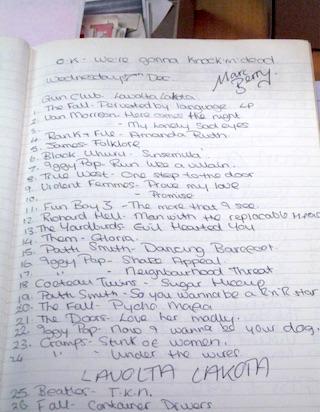 O.K - We're gonna knock 'm dead
Wednesday Dec.
Marc Berry.
Gun Club. Lavolta Lakota.
1. The Fall - Perverted by language LP
2. Van Morrison. Here comes the night
3. " - My lonely sad eyes
4. Rank + File - Amanda Ruth
5. James - Folklore
6. Black Uhuru - Sinsemilla
7. Iggy Pop - Run like a villain.
8. True West - One step to the door
9. Violent Femmes - Prove my love
10. " - Promise
11. Fun Boy 3 - The more that I see.
12. Richard Hell. Man with the replacable Head
13. The Yardbirds. Evil Hearted You
14. Them - Gloria.
15. Patti Smith - Dancing Barefoot.
16. Iggy Pop - Shake Appeal.
17. " - Neighbourhood Threat
18 Cocteau Twins - Sugar Hiccup
19. Patti Smith - So you wannabe a R'n'R star
20. The Fall - Pycho Mafia
21. The Doors. Love her madly.
22. Iggy Pop - Now I wanna be your dog.
23. Cramps - Stunt of women.
24 " - Under the wires
LAVOLTA LAKOTA
25. Beatles - T.K.N.
26 Fall - Container Drivers